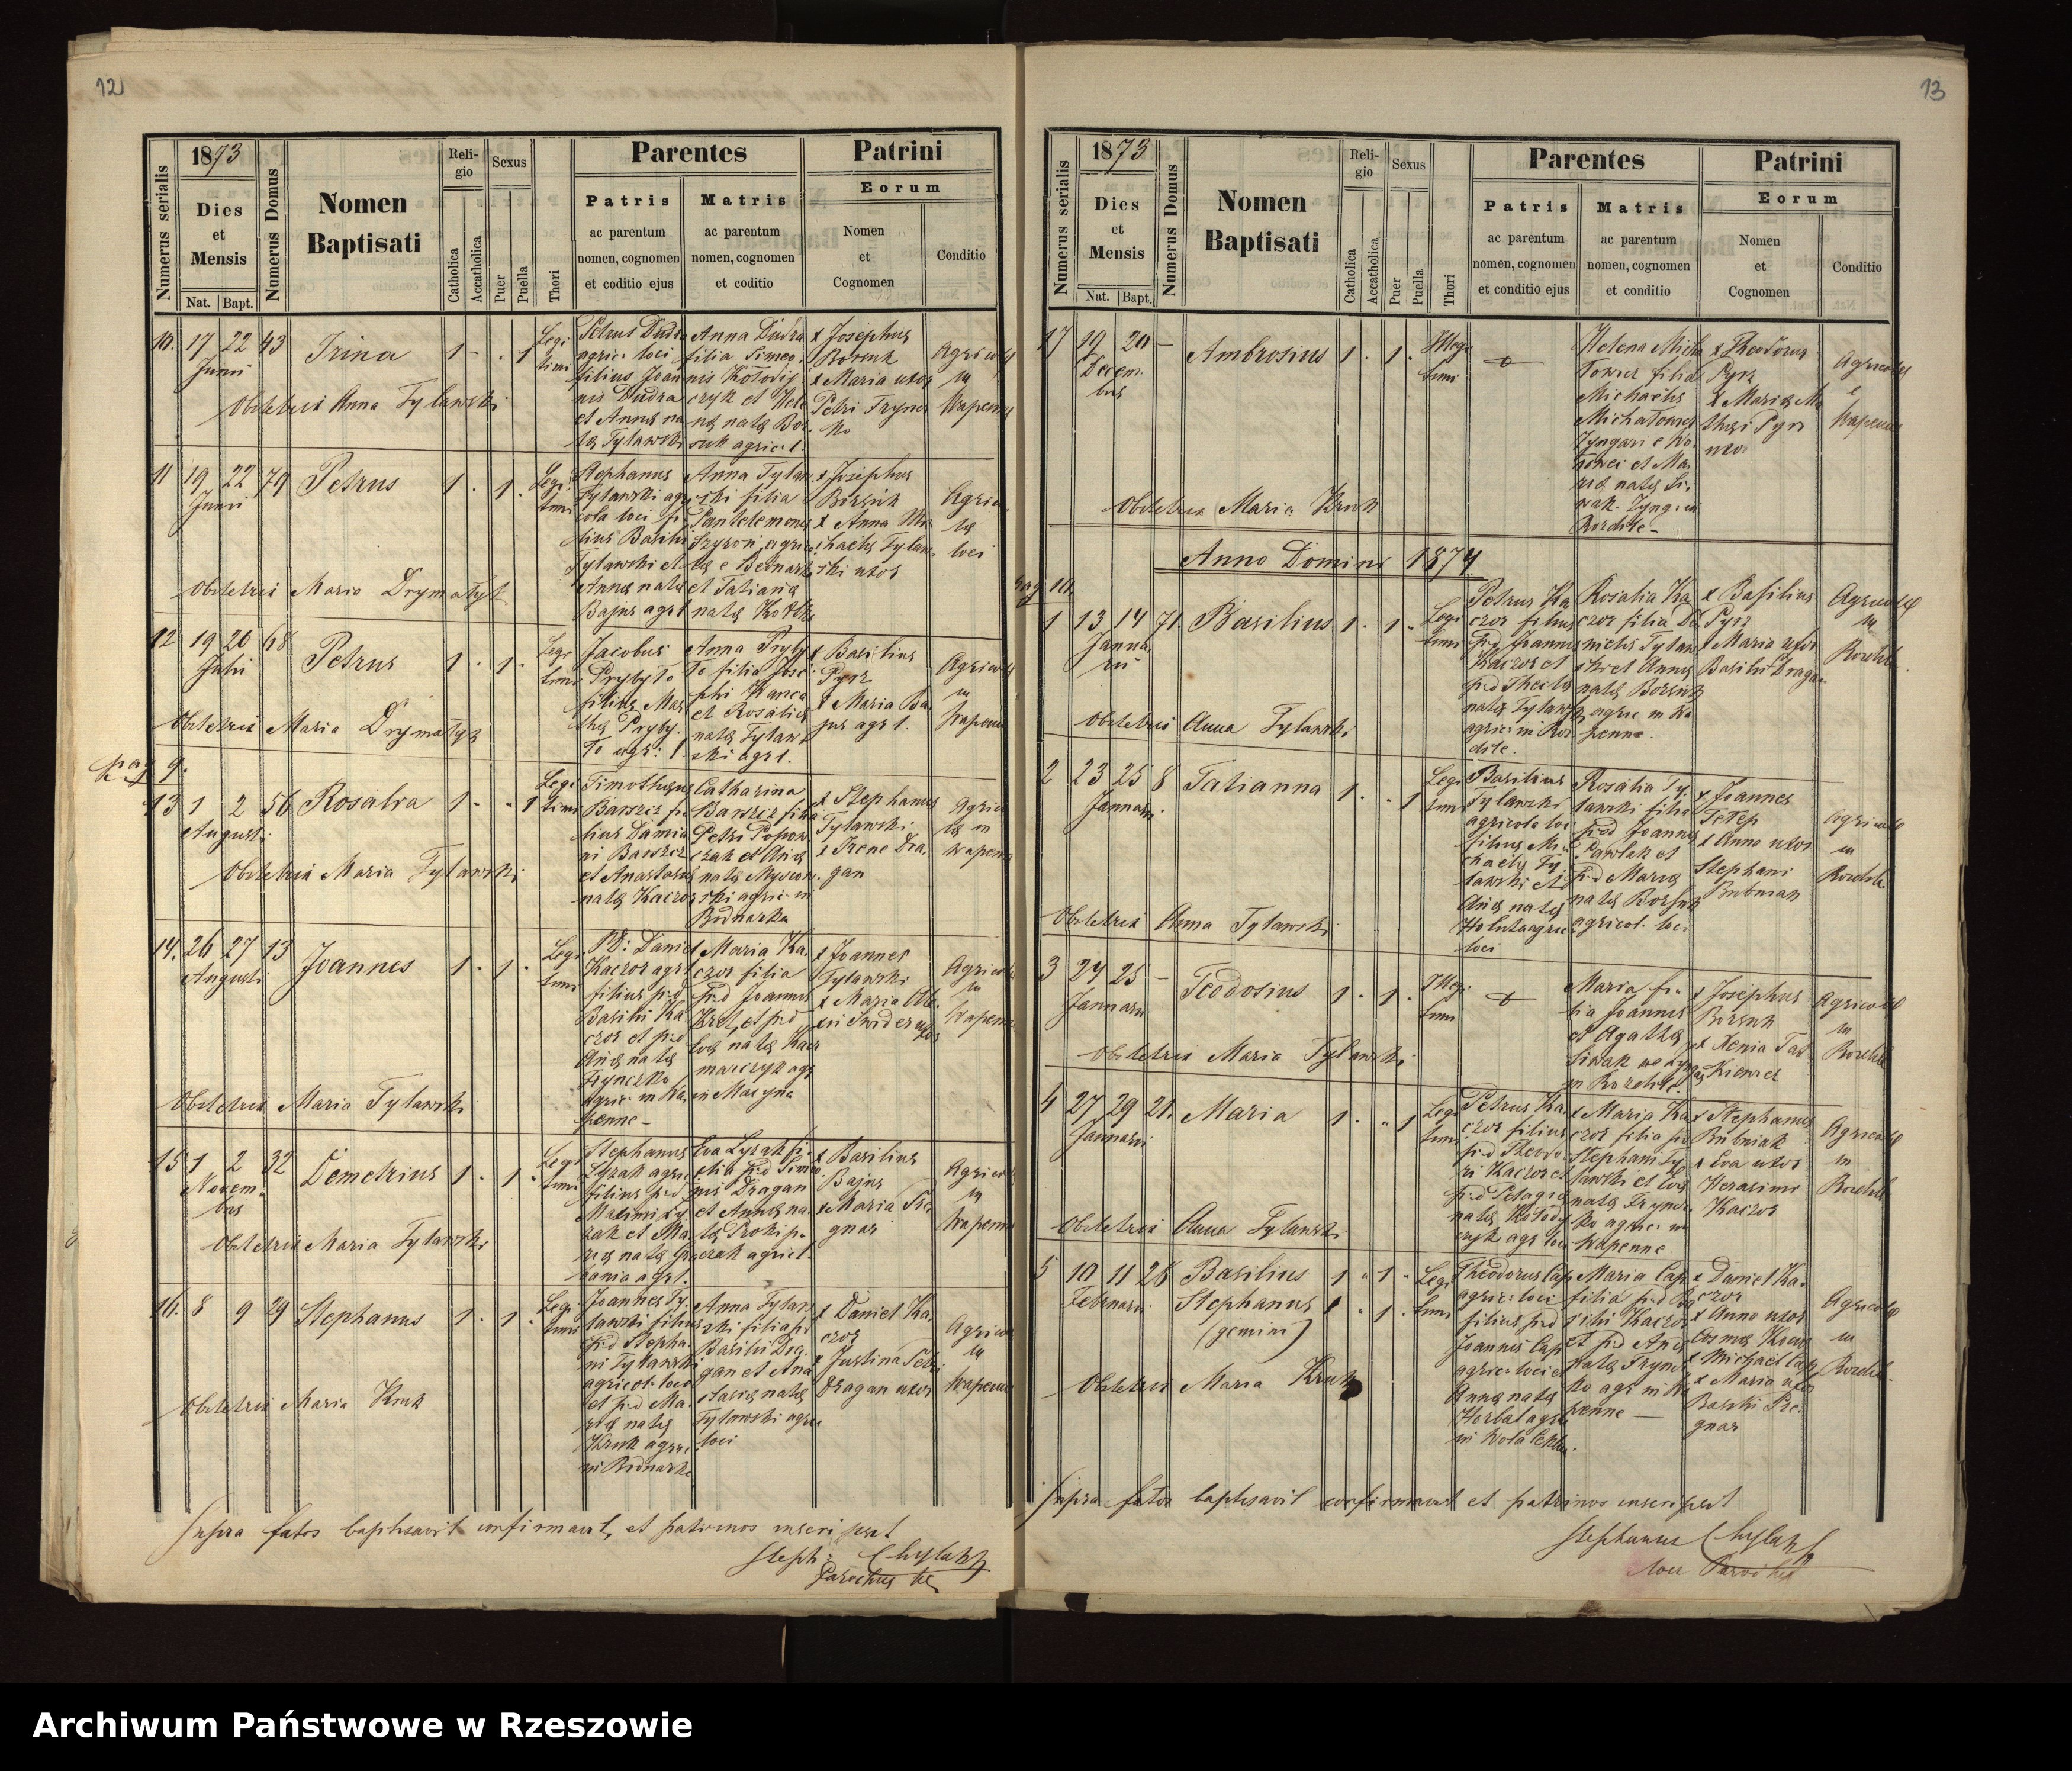 12
Numerus serialis
1873
Dies
et
Mensis
Nat. Bapt.
Numerus Domus
Nomen
Baptisati
Reli-
gio
Catholica
Accatholica
Sexus
Puer
Puella
Thori
Parentes
Patris
ac parentum
nomen, cognomen
et coditio ejus
Matris
ac parentum
nomen, cognomen
et coditio
Patrini
Eorum
Nomen
et
Cognomen
Conditio
10. 17 22 43 Irina 1 1
Junii
Legi
timi
Petrus Dudra
agric. loci
filius Joan
nis Dudra
et Anna na
ta Tylawski
Anna Dudra
filia Simeo
nis Kołodij
czyk et Hele
na nata Bor
suk agric. l.
x Josephus
Borsuk
x Maria uxor
Petri Frynci
ko
Agricol
in
Wapenne
Obstetrix Anna Tylawski
11 19 22 79 Petrus 1 1
Junii
Legi
timi
Stephanus
Tylawski agri
cola loci fi
lius Basilii
Tylawski et
Anna nata
Bajus agr l
Anna Tylaw
ski filia
Pantelemonis
et Tatiana
x Josephus
Borsuk
x Anna Mi
chaelis Tylaw
ski uxor
Agrico
lae
loci
Obstetrix Maria Drymałyk
12 19 20 68 Petrus 1 1
Julii
Legi
timi
Jacobus
Prybyło
filius Mat
thei Pryby
ło agr: l.
Anna Pryby
ło filia Jose
phi Kanca
et Rosalia
nata Tylaw
ski agr l.
x Basilius
Pyrz
x Maria Ba
jus agr l.
Agricol
in
Wapenne
Obstetrix Maria Drymałyk
pag 9.
13 1 2 56 Rosalia 1 1
Augusti
Legi
timi
Timotheus
Barszcz fi
lius Damia
ni Barszcz
et Anastasia
nata Kaczor
Catharina
Barszcz filia
Petri Popow
czak et Anna
ski agric. in
Bodnarka
x Stephanus
Tylawski
x Irene Dra
gan
Agrico
lae in
Wapenne
Obstetrix Maria Tylawski
14. 26 27 13 Joannes 1 1
Augusti
Legi
timi
Daniel
Kaczor agr
filius p:d
Basilii Ka
czor et p:d
Anna nata
Frynczko
agric. in Wa
penne
Maria Ka
czor filia
p:d Joannis
Kret, et p:d
Eva nata Kacz
marczyk agr
in Macyna
x Joannes
Tylawski
x Maria Ale
xii Swider uxor
Agricol
in
Wapenne
Obstetrix Maria Tylawski
15 1 2 32 Demetrius 1 1
Novem
bris
Legi
timi
Stephanus
Lyzak agric
filius p:d
Maximi Ly
zak et Ma
ria nata
hania agr l.
Eva Lyzak fi
lia p:d Simeo
nis Dragan
et Anna na
ta Prokip
czak agric l.
x Basilius
Bajus
x Maria Pie
gnar
Agricol
in
Wapenne
Obstetrix Maria Tylawski
16. 8 9 29 Stephanus 1 1
Legi
timi
Joannes Ty
lawski filius
p:d Stepha
ni Tylawski
agricol. loci
et p:d Ma
ria nata
Kruk agric
in Bodnarka
Anna Tylaw
ski filia p:
Basilii Dra
gan et Ana
stasia nata
Tylawski agric
loci
x Daniel Ka
czor
x Justina Petri
Dragan uxor
Agricol
in
Wapenne
Obstetrix Maria Kruk
Supra fatos baptisavit confirmavit, et patrinos inscripsit
Steph: Chylak
Parochus
13
Numerus serialis
1873
Dies
et
Mensis
Nat. Bapt.
Numerus Domus
Nomen
Baptisati
Reli-
gio
Catholica
Accatholica
Sexus
Puer
Puella
Thori
Parentes
Patris
ac parentum
nomen, cognomen
et conditio ejus
Matris
ac parentum
nomen, cognomen
et conditio
Patrini
Eorum
Nomen
et
Cognomen
Conditio
17 19 20 – Ambrosius 1 1
Decem
bris
Illegi
timi
Helena Micha
łowicz filia
Michaelis
Michałowicz
Zyngari e Wo
łowei et Ma
ria nata Si
wak Zyng. in
Rozdile
x Theodorus
Pyrz
x Maria Ma
thei Pyrz
uxor
Agricolae
e
Wapenne
Obstetrix Maria Kruk
Anno Domini 1874
pag 10
1 13 14 71 Basilius 1 1
Janua
rii
Legi
timi
Petrus Ka
czor filius
p:d Joannis
Kaczor et
p:d Thecla
nata Tylaws
agric. in Roz
dile.
Rosalia Ka
czor filia Da
nielis Tylaw
ski et Anna
nata Borsuk
agric in Wa
penne.
x Basilius
Pyrz
x Maria uxor
Basilii Dragan
Agricolae
in
Rozdile
Obstetrix Anna Tylawski
2 23 25 8 Tatianna 1 1
Januarii
Legi
timi
Basilius
Tylawski
agricola loci
filius Mi
chaelis Ty
lawski et
Anna nata
Holuta agric
loci
Rosalia Ty
lawski filia
p:d Joannis
Pawlak et
p:d Maria
nata Borsuk
agricol. loci
x Joannes
Tetep
x Anna uxor
Stephani
Bubniak
Agricolae
in
Rozdile
Obstetrix Anna Tylawski
3 24 25 – Teodosius 1 1
Januarii
Illegi
timi
Maria fi
lia Joannis
et Agatha
Siwak
in Rozdile
x Josephus
Borsuk
x Xenia
Agricolae
in
Rozdile
Obstetrix Maria Tylawski
4 27 29 21. Maria 1 1
Januarii
Legi
timi
Petrus Ka
czor filius
p:d Theodo
ri Kaczor et
p:d Pelagia
nata Kołody
czyk agr loci
Maria Ka
czor filia p:d
Stephani Ty
lawski et Eva
nata Frynci
ko agric. in
Wapenne
x Stephanus
Bubniak
x Eva uxor
Herasimi
Kaczor
Agricolae
in
Rozdile
Obstetrix Anna Tylawski
5 10 11 26 Basilius 1 1
Februarii Stephanus 1 1
(gemini)
Legi
timi
Theodorus Cap
agric. loci
filius p:d
Joannis Cap
agric. loci et
Anna nata
Horbal agric
in Wola
Maria Cap
filia p:d Ba
silii Kaczor
et p:d Anna
nata Frynci
ko agr in Wa
penne
x Daniel Ka
czor
x Anna uxor
Cosmae
x Michael Cap
x Maria uxor
Basilii Pie
gnar
Agricolae
in
Rozdile
Obstetrix Maria Kruk
Supra fatos baptisavit confirmavit et patrinos inscripsit
Stephanus Chylak
loci Parochus
Archiwum Państwowe w Rzeszowie